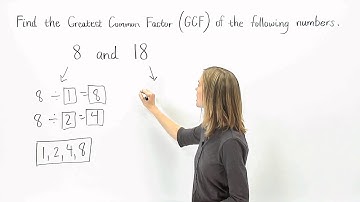 Find the Greatest Common Factor (GCF) of the following numbers.
8 and 18
8 ÷ 1 = 8
8 ÷ 2 = 4
1, 2, 4, 8